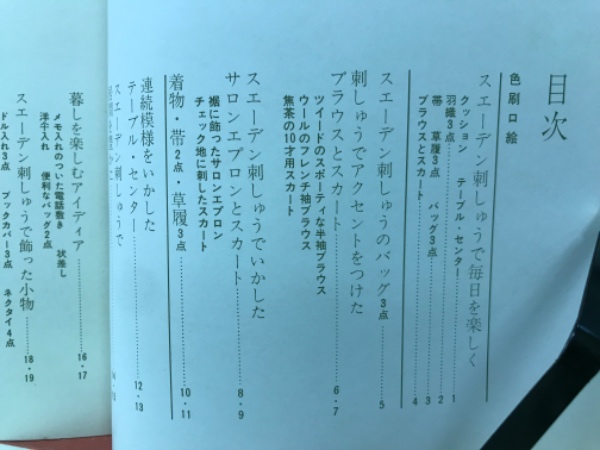 目次
色刷口絵
スエーデン刺しゅうで毎日を楽しく
クッション テーブル・センター……1
羽織3点……2
帯 草履3点 バッグ3点……3
ブラウスとスカート……4
スエーデン刺しゅうのバッグ3点……5
刺しゅうでアクセントをつけた
ブラウスとスカート……6・7
ツイードのスポーティな半袖ブラウス
ウールのフレンチ袖ブラウス
焦茶の10才用スカート
スエーデン刺しゅうでいかした
サロンエプロンとスカート……8・9
裾に飾ったサロンエプロン
チェック地に刺したスカート
着物・帯2点・草履3点……10・11
連続模様をいかした
テーブル・センター……12・13
スエーデン刺しゅうで
暮しを楽しむアイディア……16・17
メモ入れのついた電話敷き 状差し
洋傘入れ 便利なバッグ2点
スエーデン刺しゅうで飾った小物……18・19
ドル入れ3点 ブックカバー3点 ネクタイ4点